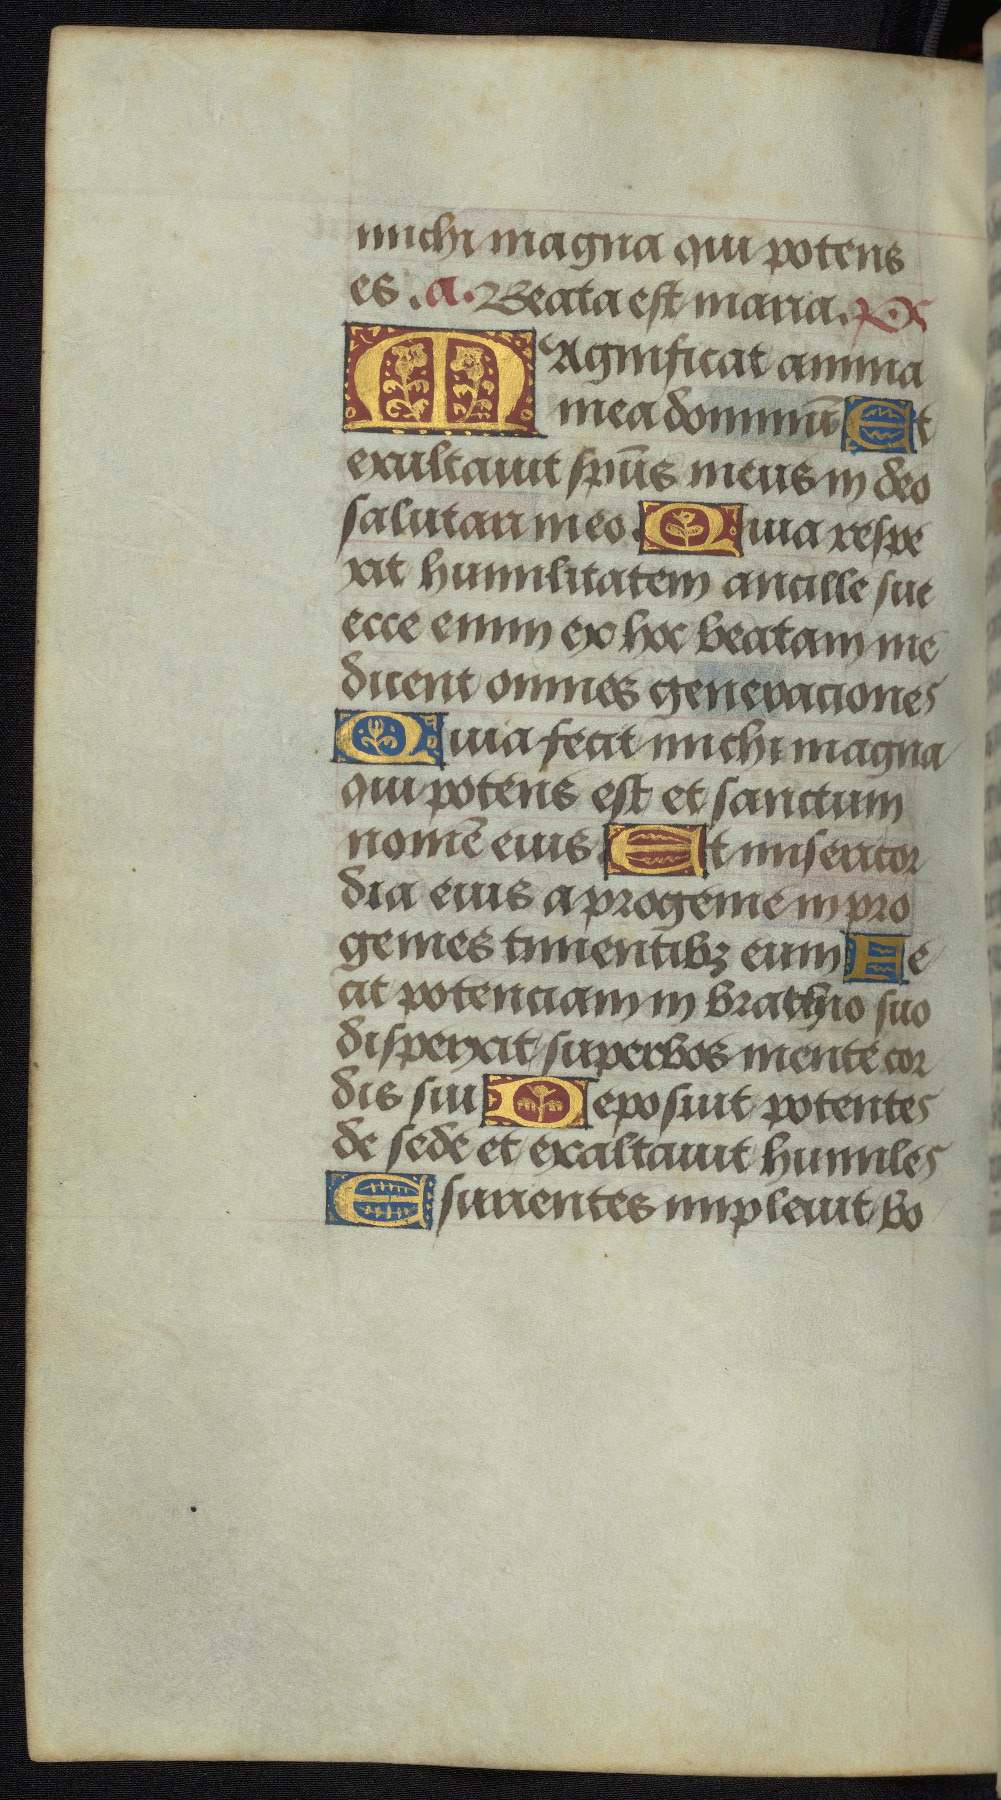 michi magna qui potens
es . a. Beata est maria. ps
MAgnificat anima
mea dominū Et
exultauit sp̄us meus in deo
salutari meo. Quia respe
xit humilitatem ancille sue
ecce enim ex hoc beatam me
dicent omnes generaciones
Quia fecit michi magna
qui potens est et sanctum
nomē eius. Et misericor
dia eius a progenie in pro
genies timentibꝫ eum Fe
cit potenciam in brachio suo
disperxit superbos mente cor
dis sui Deposuit potentes
de sede et exaltauit humiles
Esurientes impleuit bo